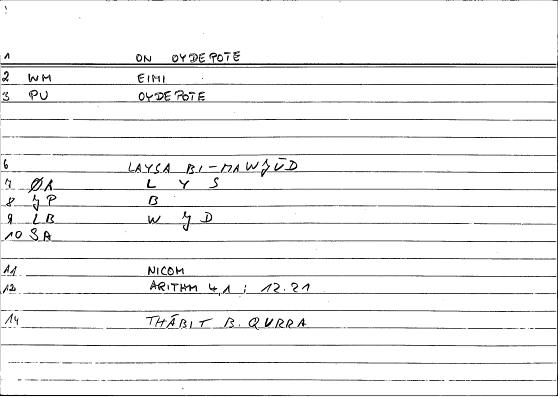 1 ON OYDEPOTE
2 WM EIMI
3 PU OYDEPOTE
6 LAYSA BI-MAWJŪD
7 ØA L Y S
8 JP B
9 LB W J D
10 SA
11 NICOM
12 ARITHM 4,1 : 12.21
14 THĀBIT B. QURRA